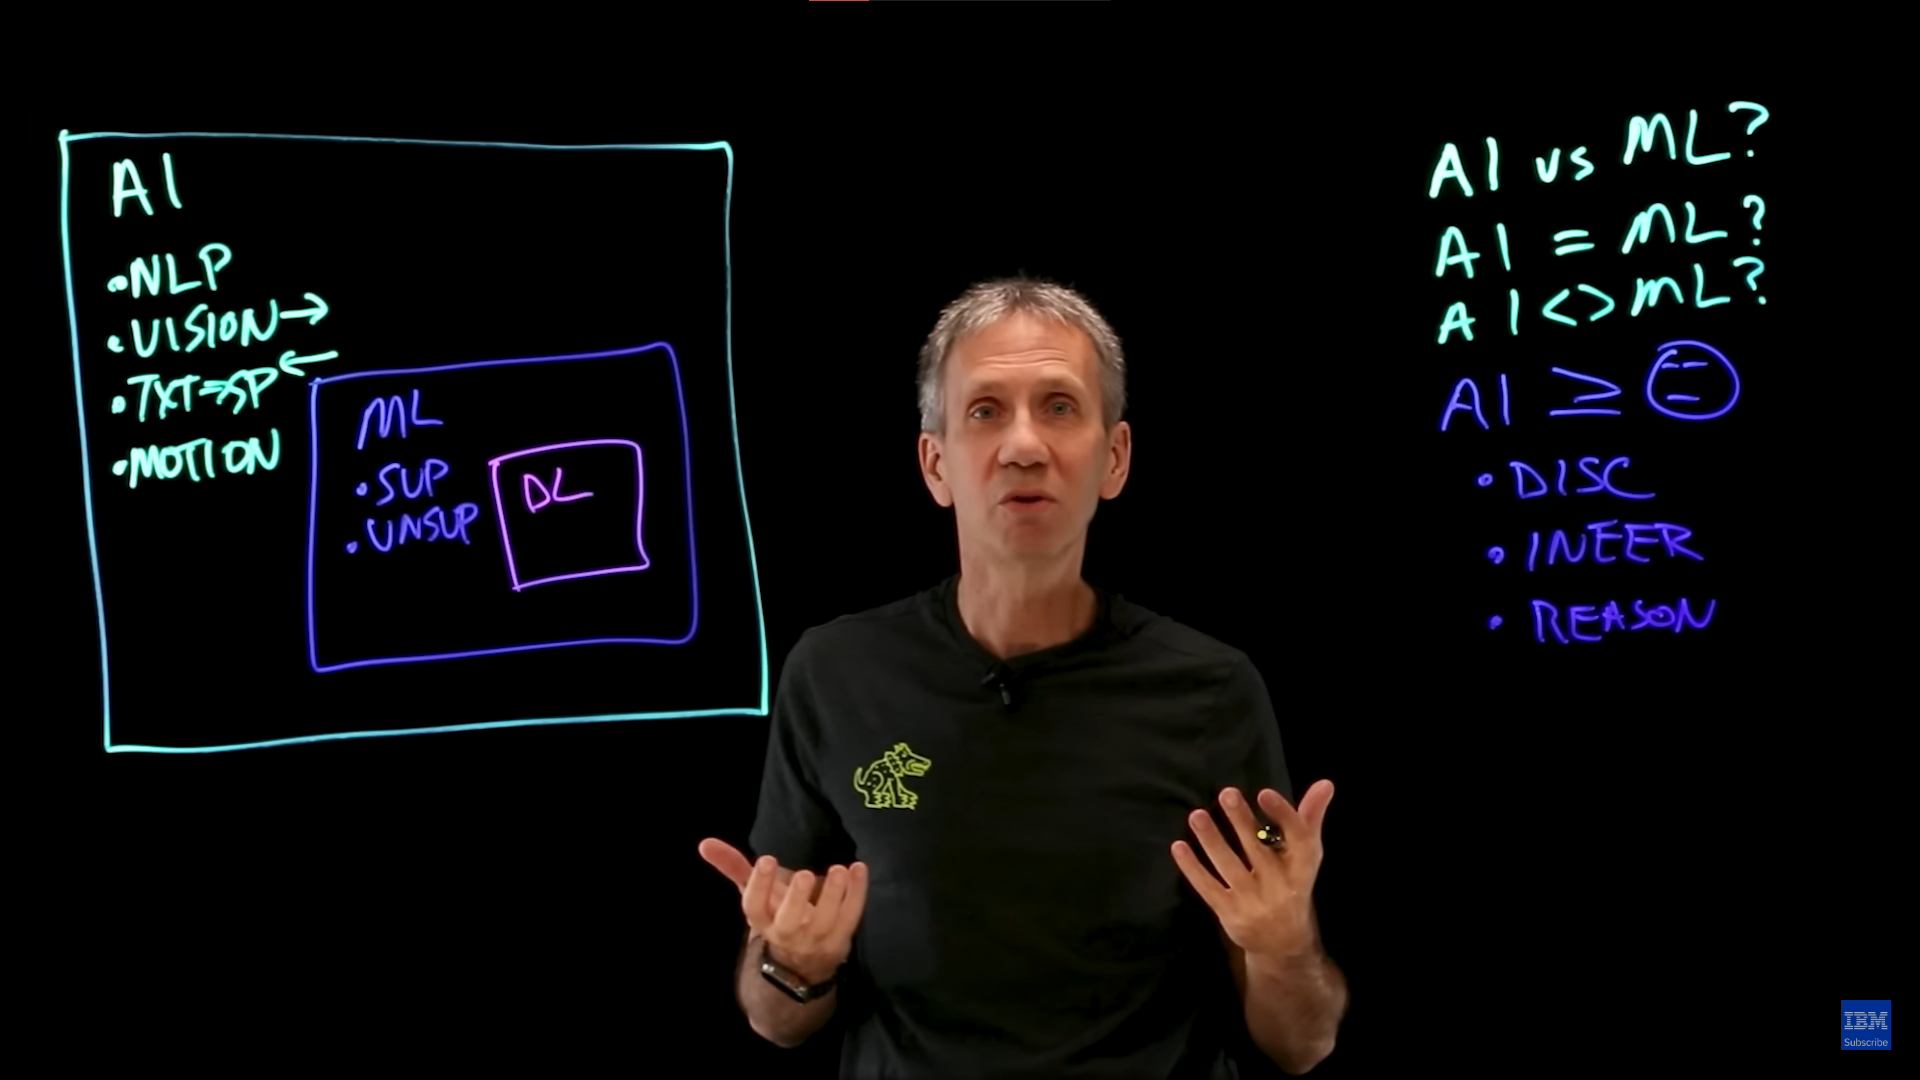 AI
•NLP
•VISION→
•TXT⇒SP←
•MOTION
ML
•SUP
•UNSUP
DL
AI vs ML?
AI = ML?
AI <> ML?
AI ≥
•DISC
•INFER
•REASON
IBM
Subscribe